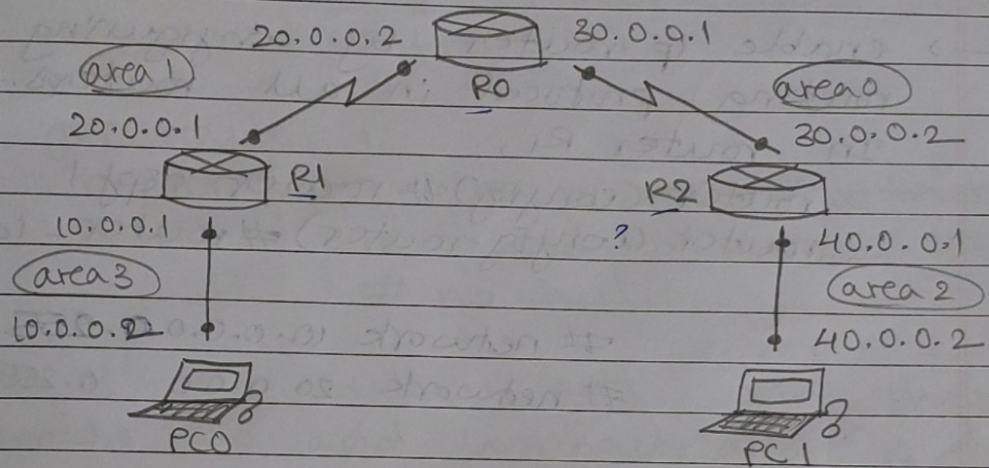 20.0.0.2 30.0.0.1
area 1 R0 area 0
20.0.0.1 30.0.0.2
R1 R2
10.0.0.1 ? 40.0.0.1
area 3 area 2
10.0.0.2 40.0.0.2
PC0 PC1